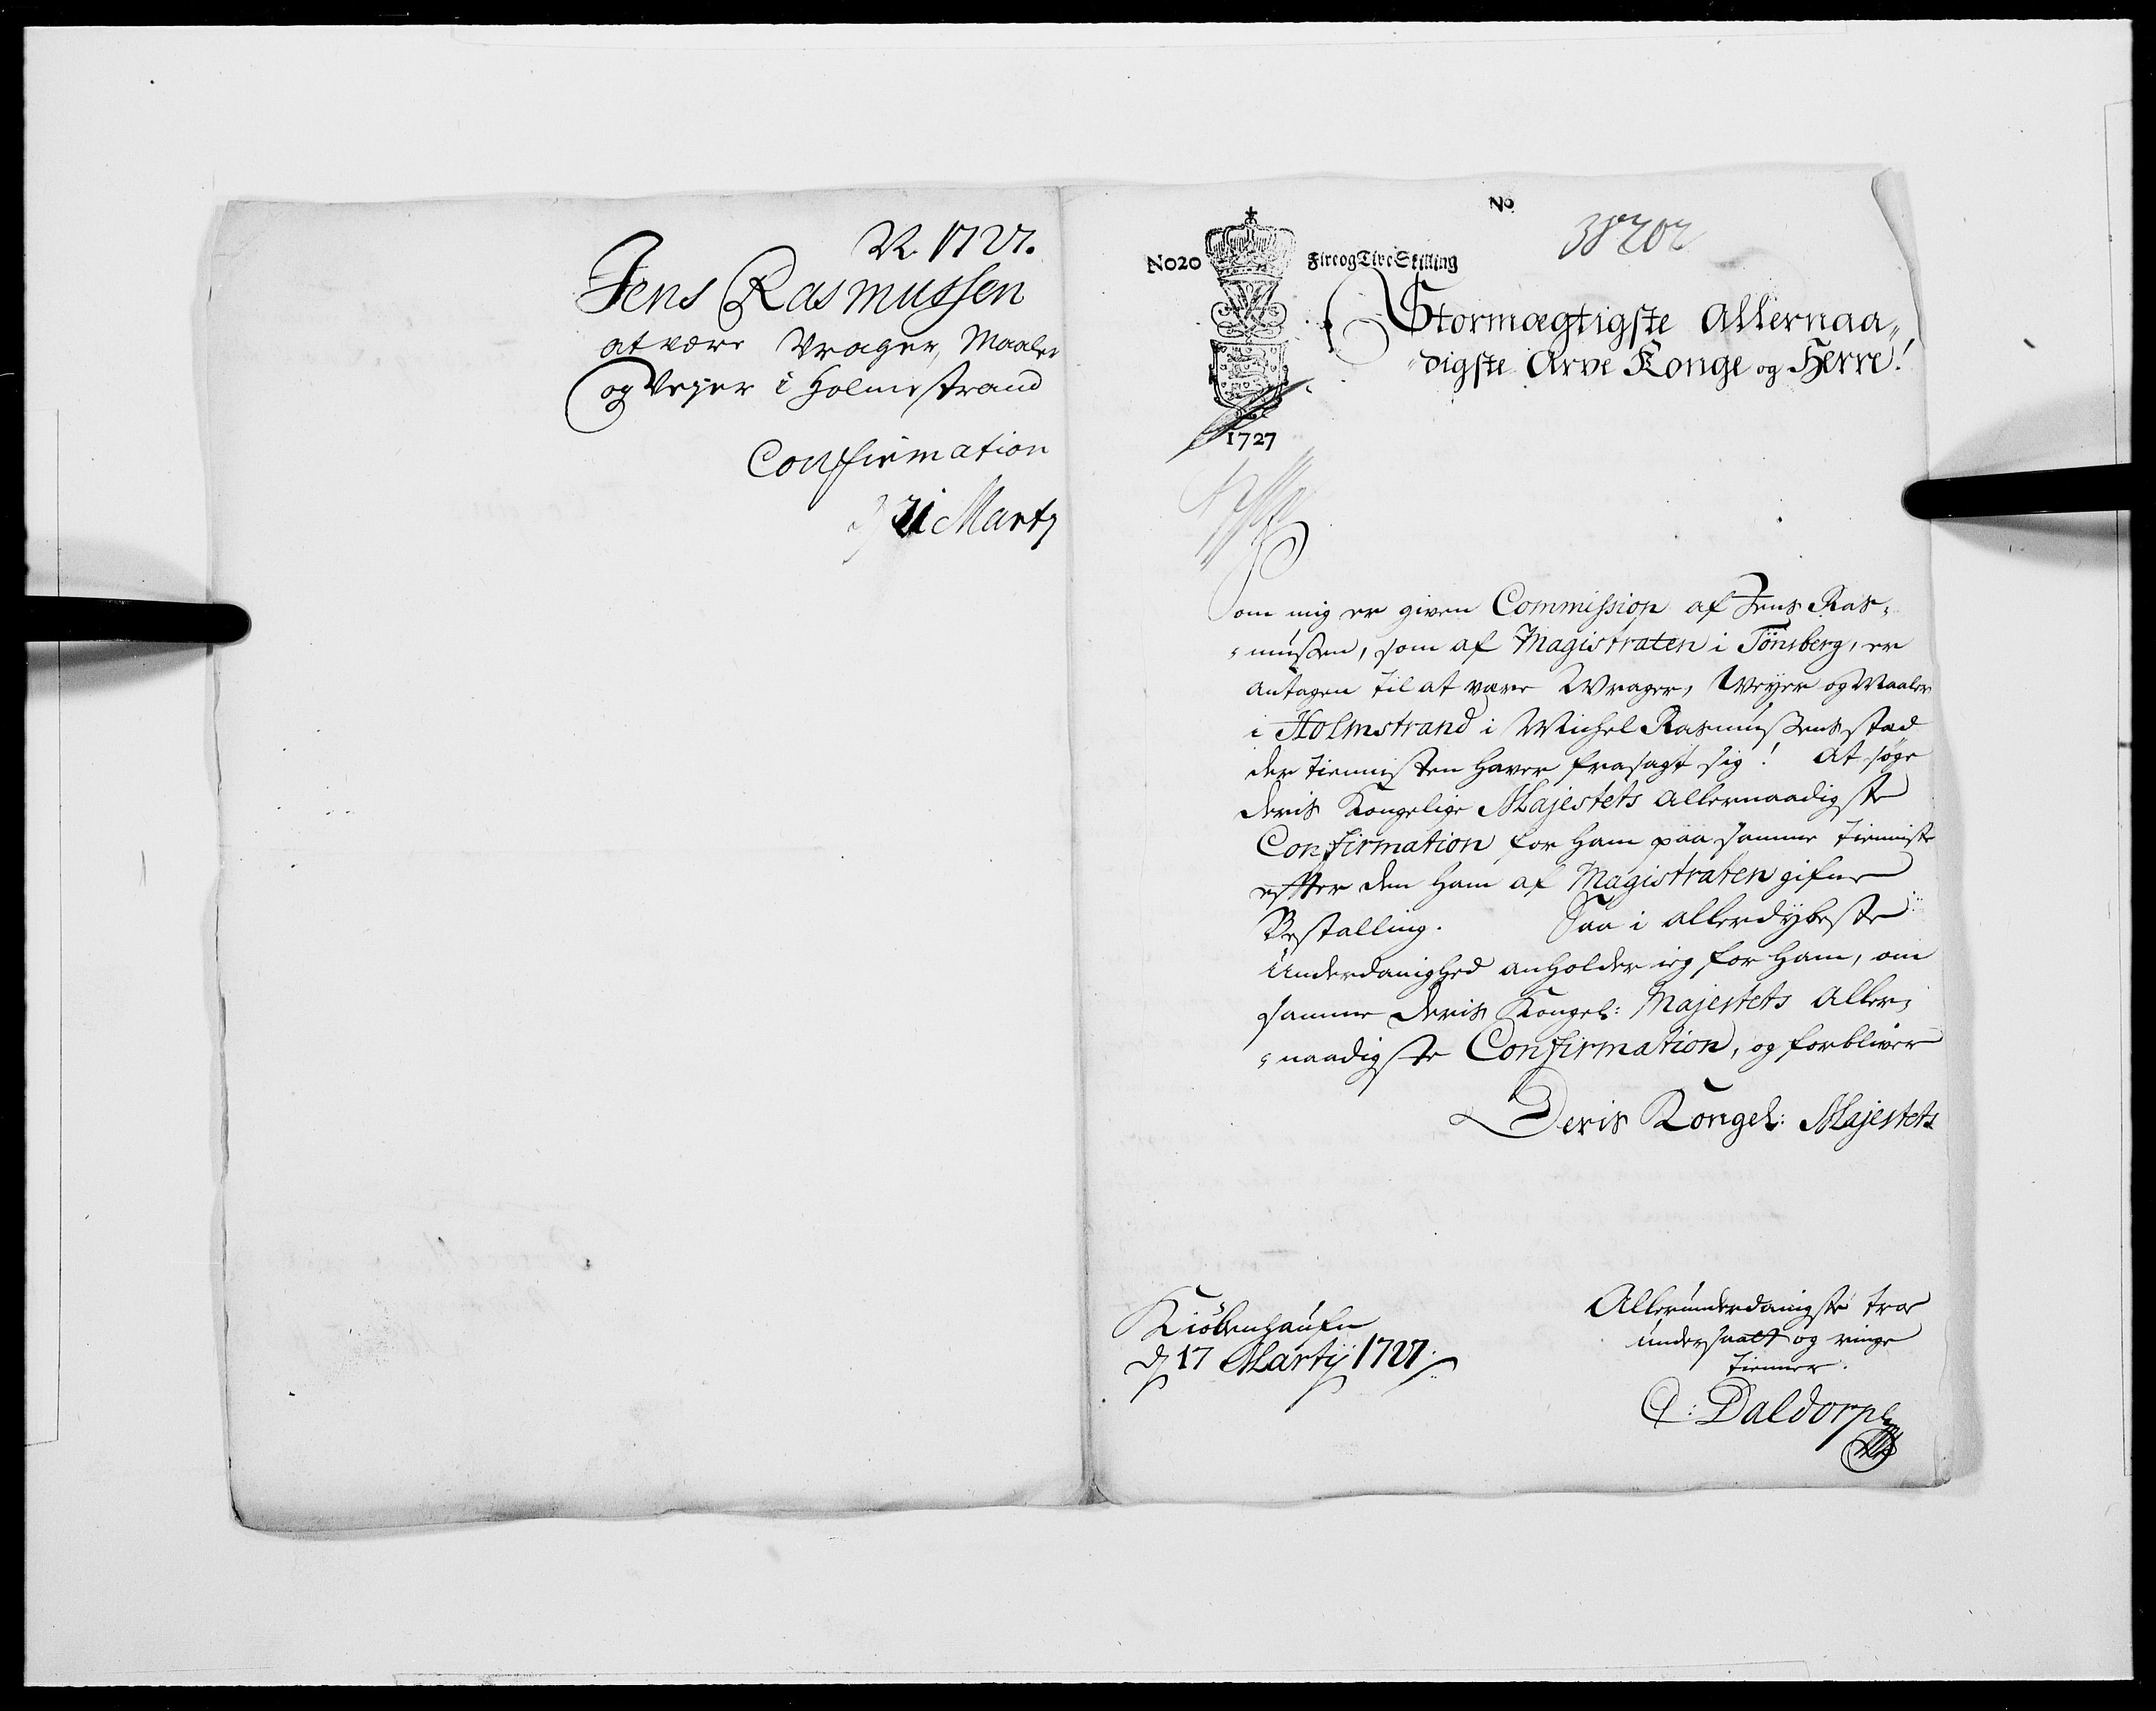 N. 1727.
Jens Rasmussen
at være Vrager, Maaler
og Vejer i Holmestrand
Confirmation
21 Martj
No
38202
No20
Fire og Tive Skilling
1727
Stormægtigste Allernaa„
„digste Arve Konge og Herre!
Som mig er given Commission af Jens Ras„
„mussen, som af Magistraten i Tönsberg, er
antagen til at være Wrager, Weyer og Maaler
i Holmstrand i Michel Rasmussens stad
der tiennisten haver frasagt sig! At søge
Deris Kongelige Majestets Allernaadigste
Confirmation for ham paa samme tienniste
effter den ham af Magistraten gifne
Bestalling. Saa i allerdybeste
Underdanighed anholder ieg for ham, om
samme Deris Kongel: Majestets Aller„
„naadigste Confirmation, og forbliver
Deris Kongel: Majestets
Kiöbenhaufn
d 17 Martij 1727.
Allerunderdanigste troe
undersaatt og ringe
tienner.
C: Daldorph